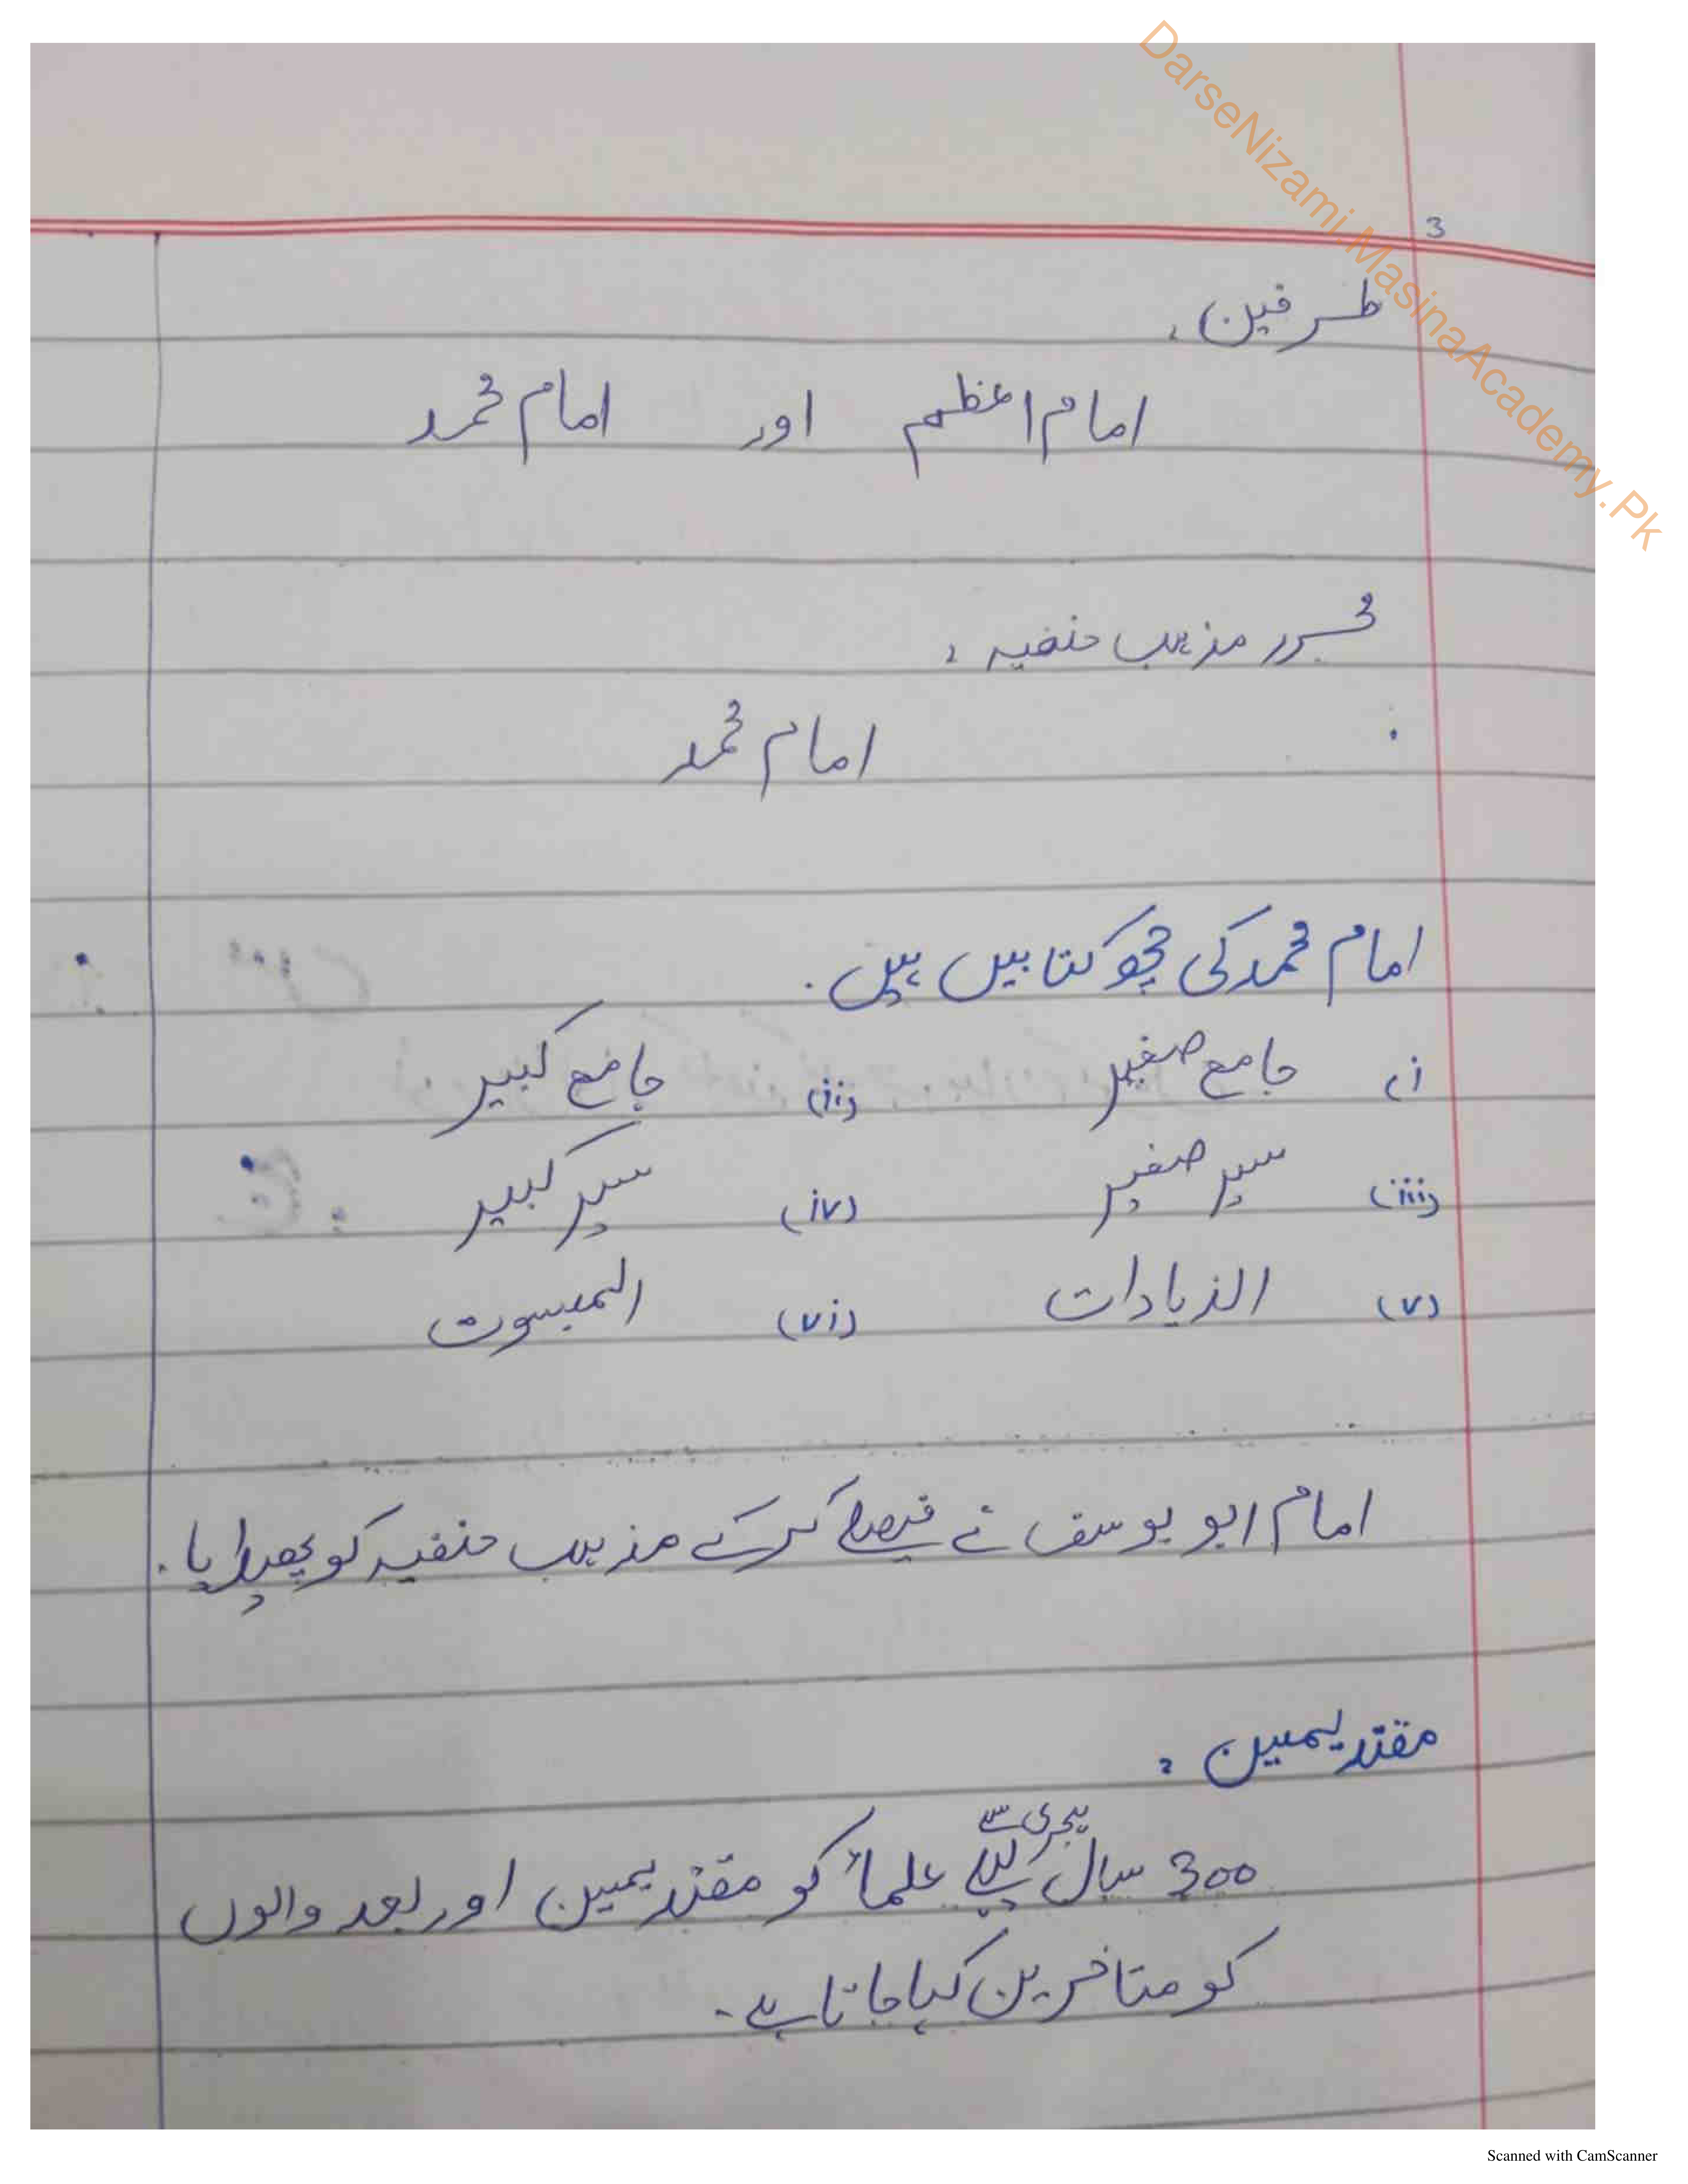 DarseNizami.MasinaAcademy.Pk
3
طرفین :
امام اعظم اور امام محمد
محرر مذہب حنفیہ :
امام محمد
امام محمد کی چھ کتابیں ہیں .
(i جامع صغیر (ii) جامع کبیر
(iii) سیر صغیر (iv) سیر کبیر
(v) الزیادات (vi) المبسوت
امام ابو یوسف نے فیصلے کرکے مذہب حنفیہ کو پھیلایا .
مقتدیمین :
ہجری سے
300 سال پہلے علماء کو مقتدیمین اور بعد والوں
کو متاخرین کہا جاتا ہے -
Scanned with CamScanner